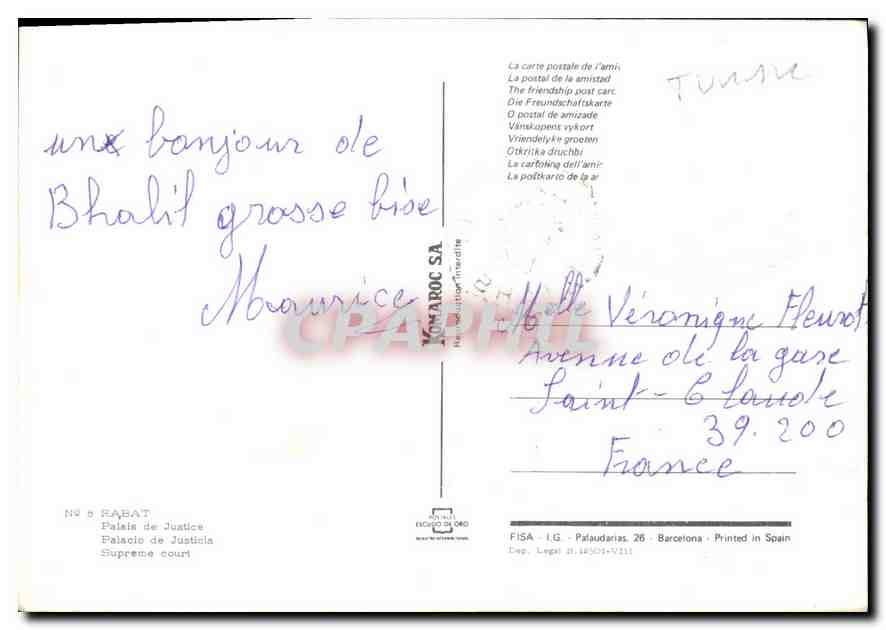 un bonjour de
Bhalil grosse bise
Maurice
Nº 8 RABAT
Palais de Justice
Palacio de Justicia
Supreme court
KOMAROC SA
Reproduction interdite
POSTALES
ESCUDO DE ORO
La carte postale de l'ami
La postal de la amistad
The friendship post carc
Die Freundschaftskarte
O postal de amizade
Vänskapens vykort
Vriendelyke groeten
Otkritka druchbi
La cartolina dell'amir
La poŝtkarto de la ar
TUNISIE
Melle Véronique Fleurot
Avenue de la gare
Saint-Claude
39.200
France
FISA - I.G. - Palaudarias, 26 - Barcelona - Printed in Spain
CPAPHIL